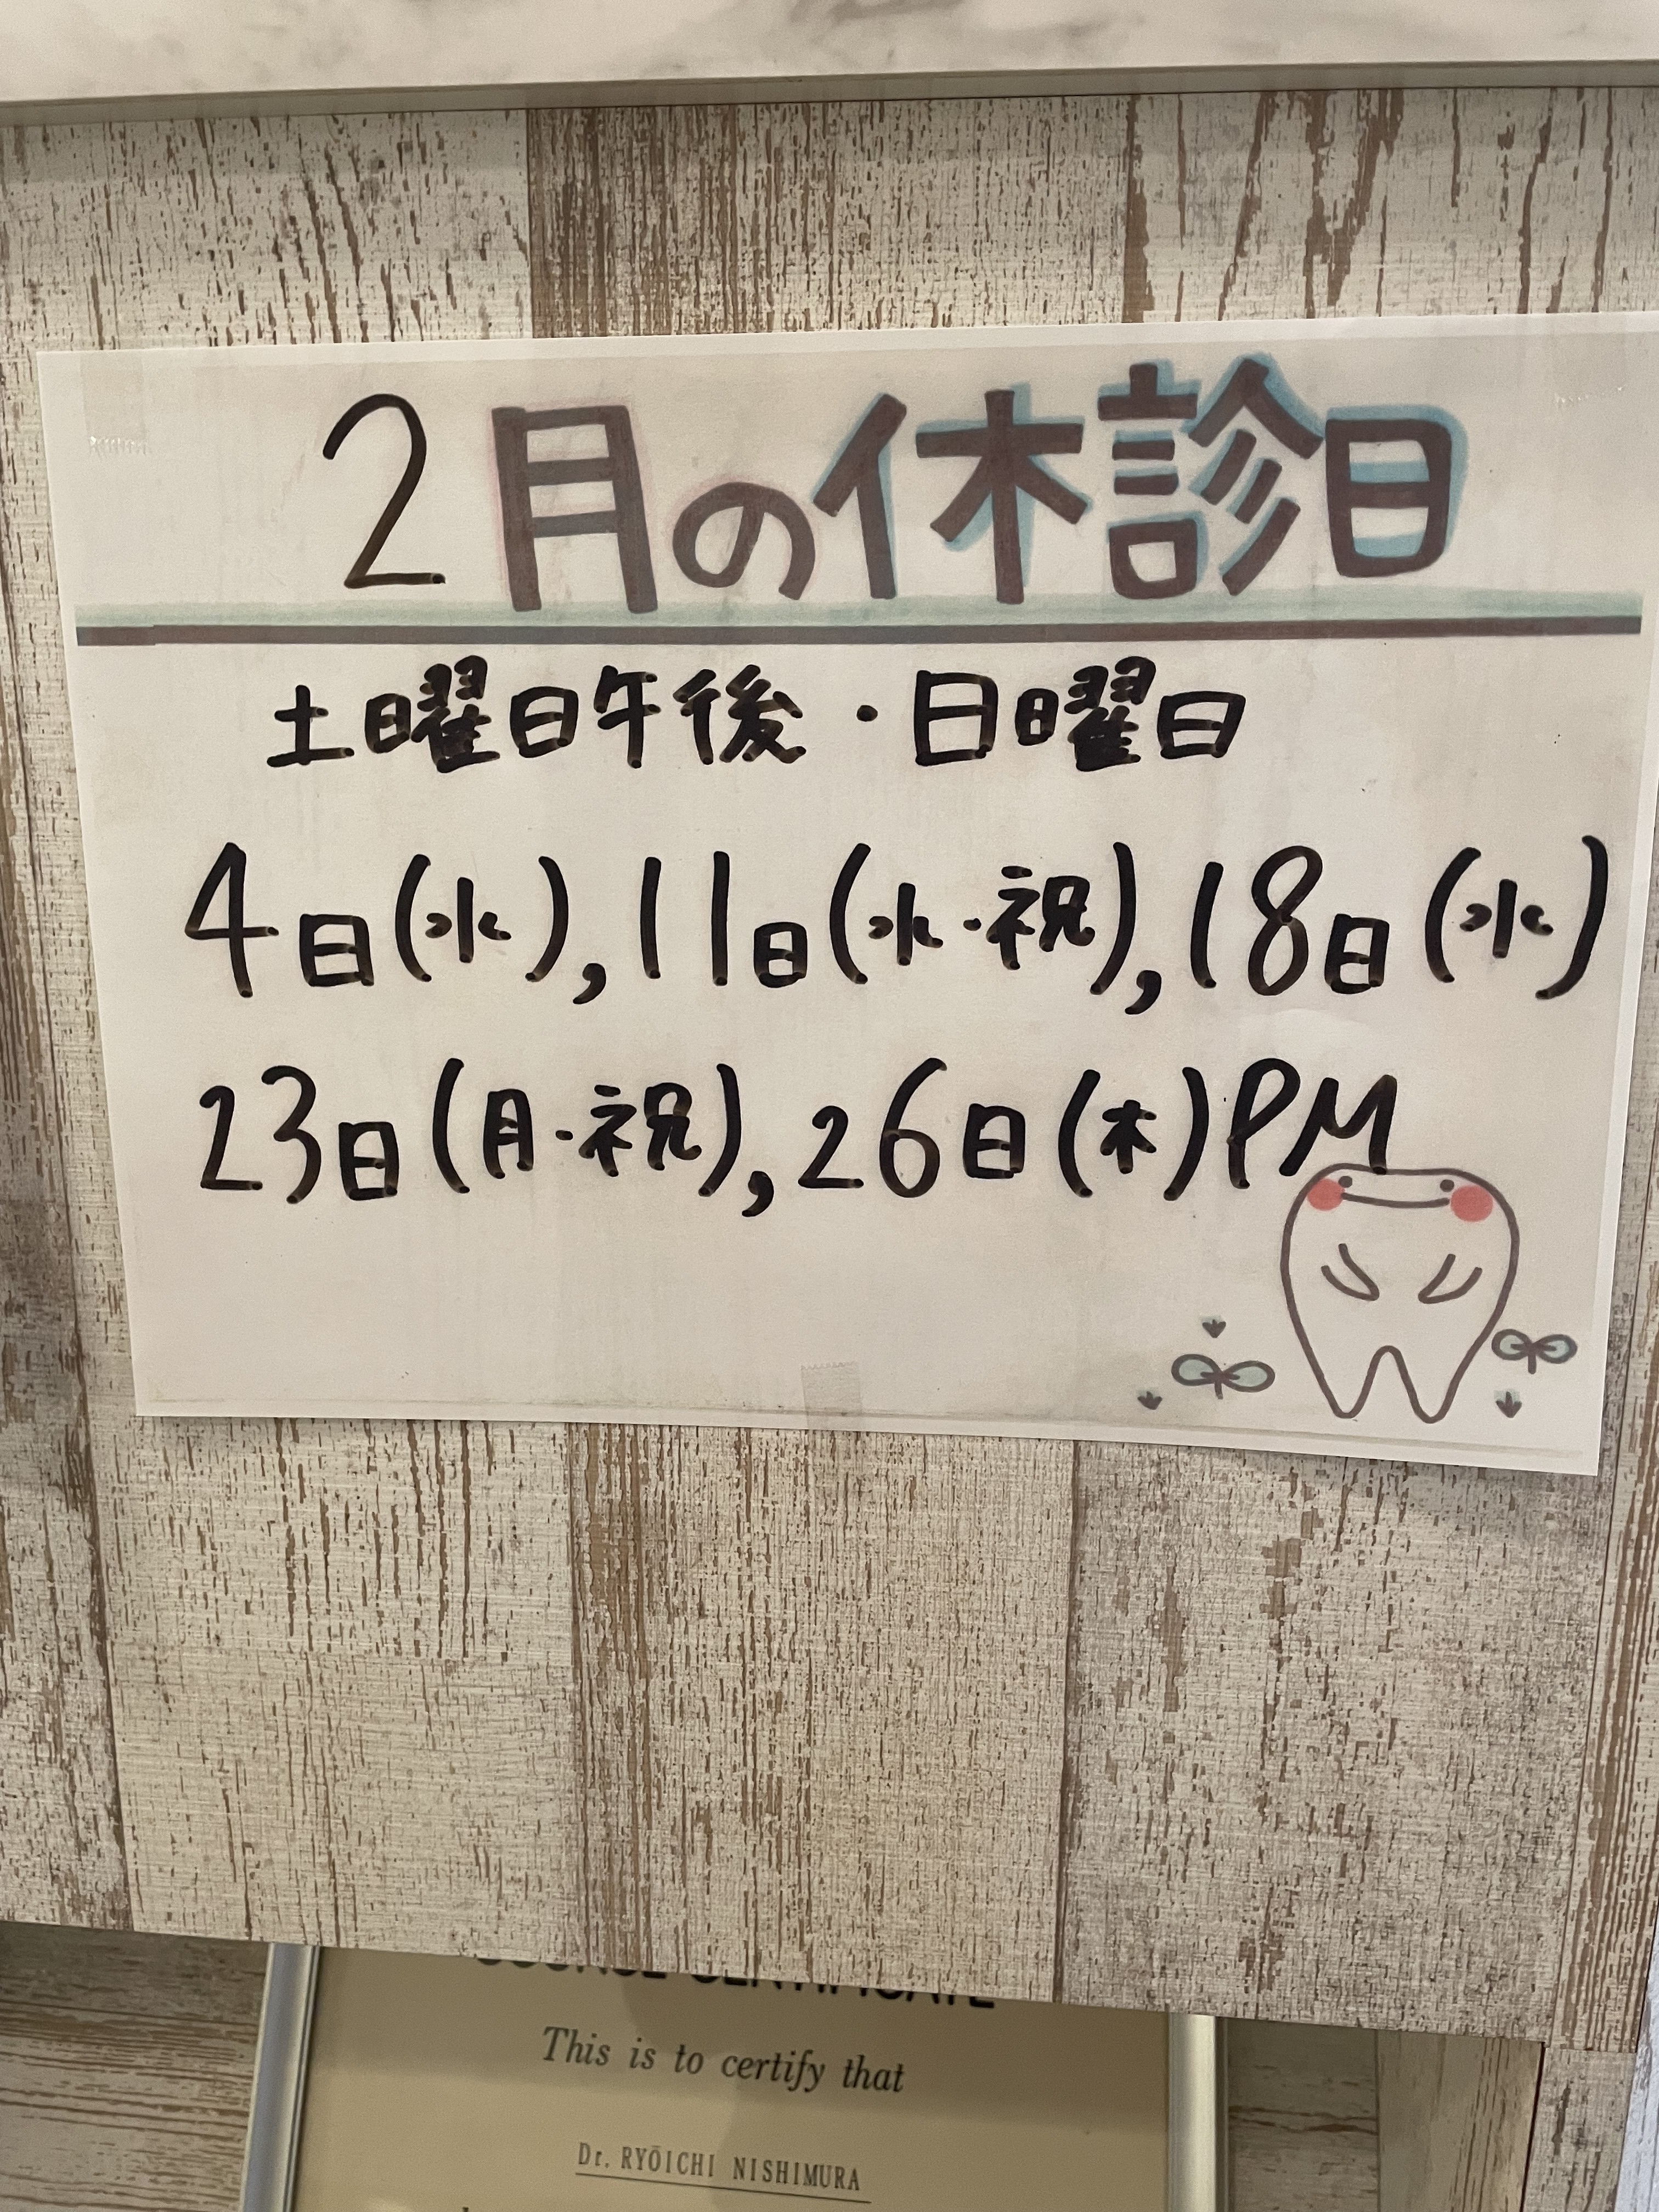 2月の休診日
土曜日午後・日曜日
4日(水),11日(水・祝),18日(水)
23日(月・祝),26日(木)PM
COURSE CERTIFICATE
This is to certify that
Dr. RYŌICHI NISHIMURA